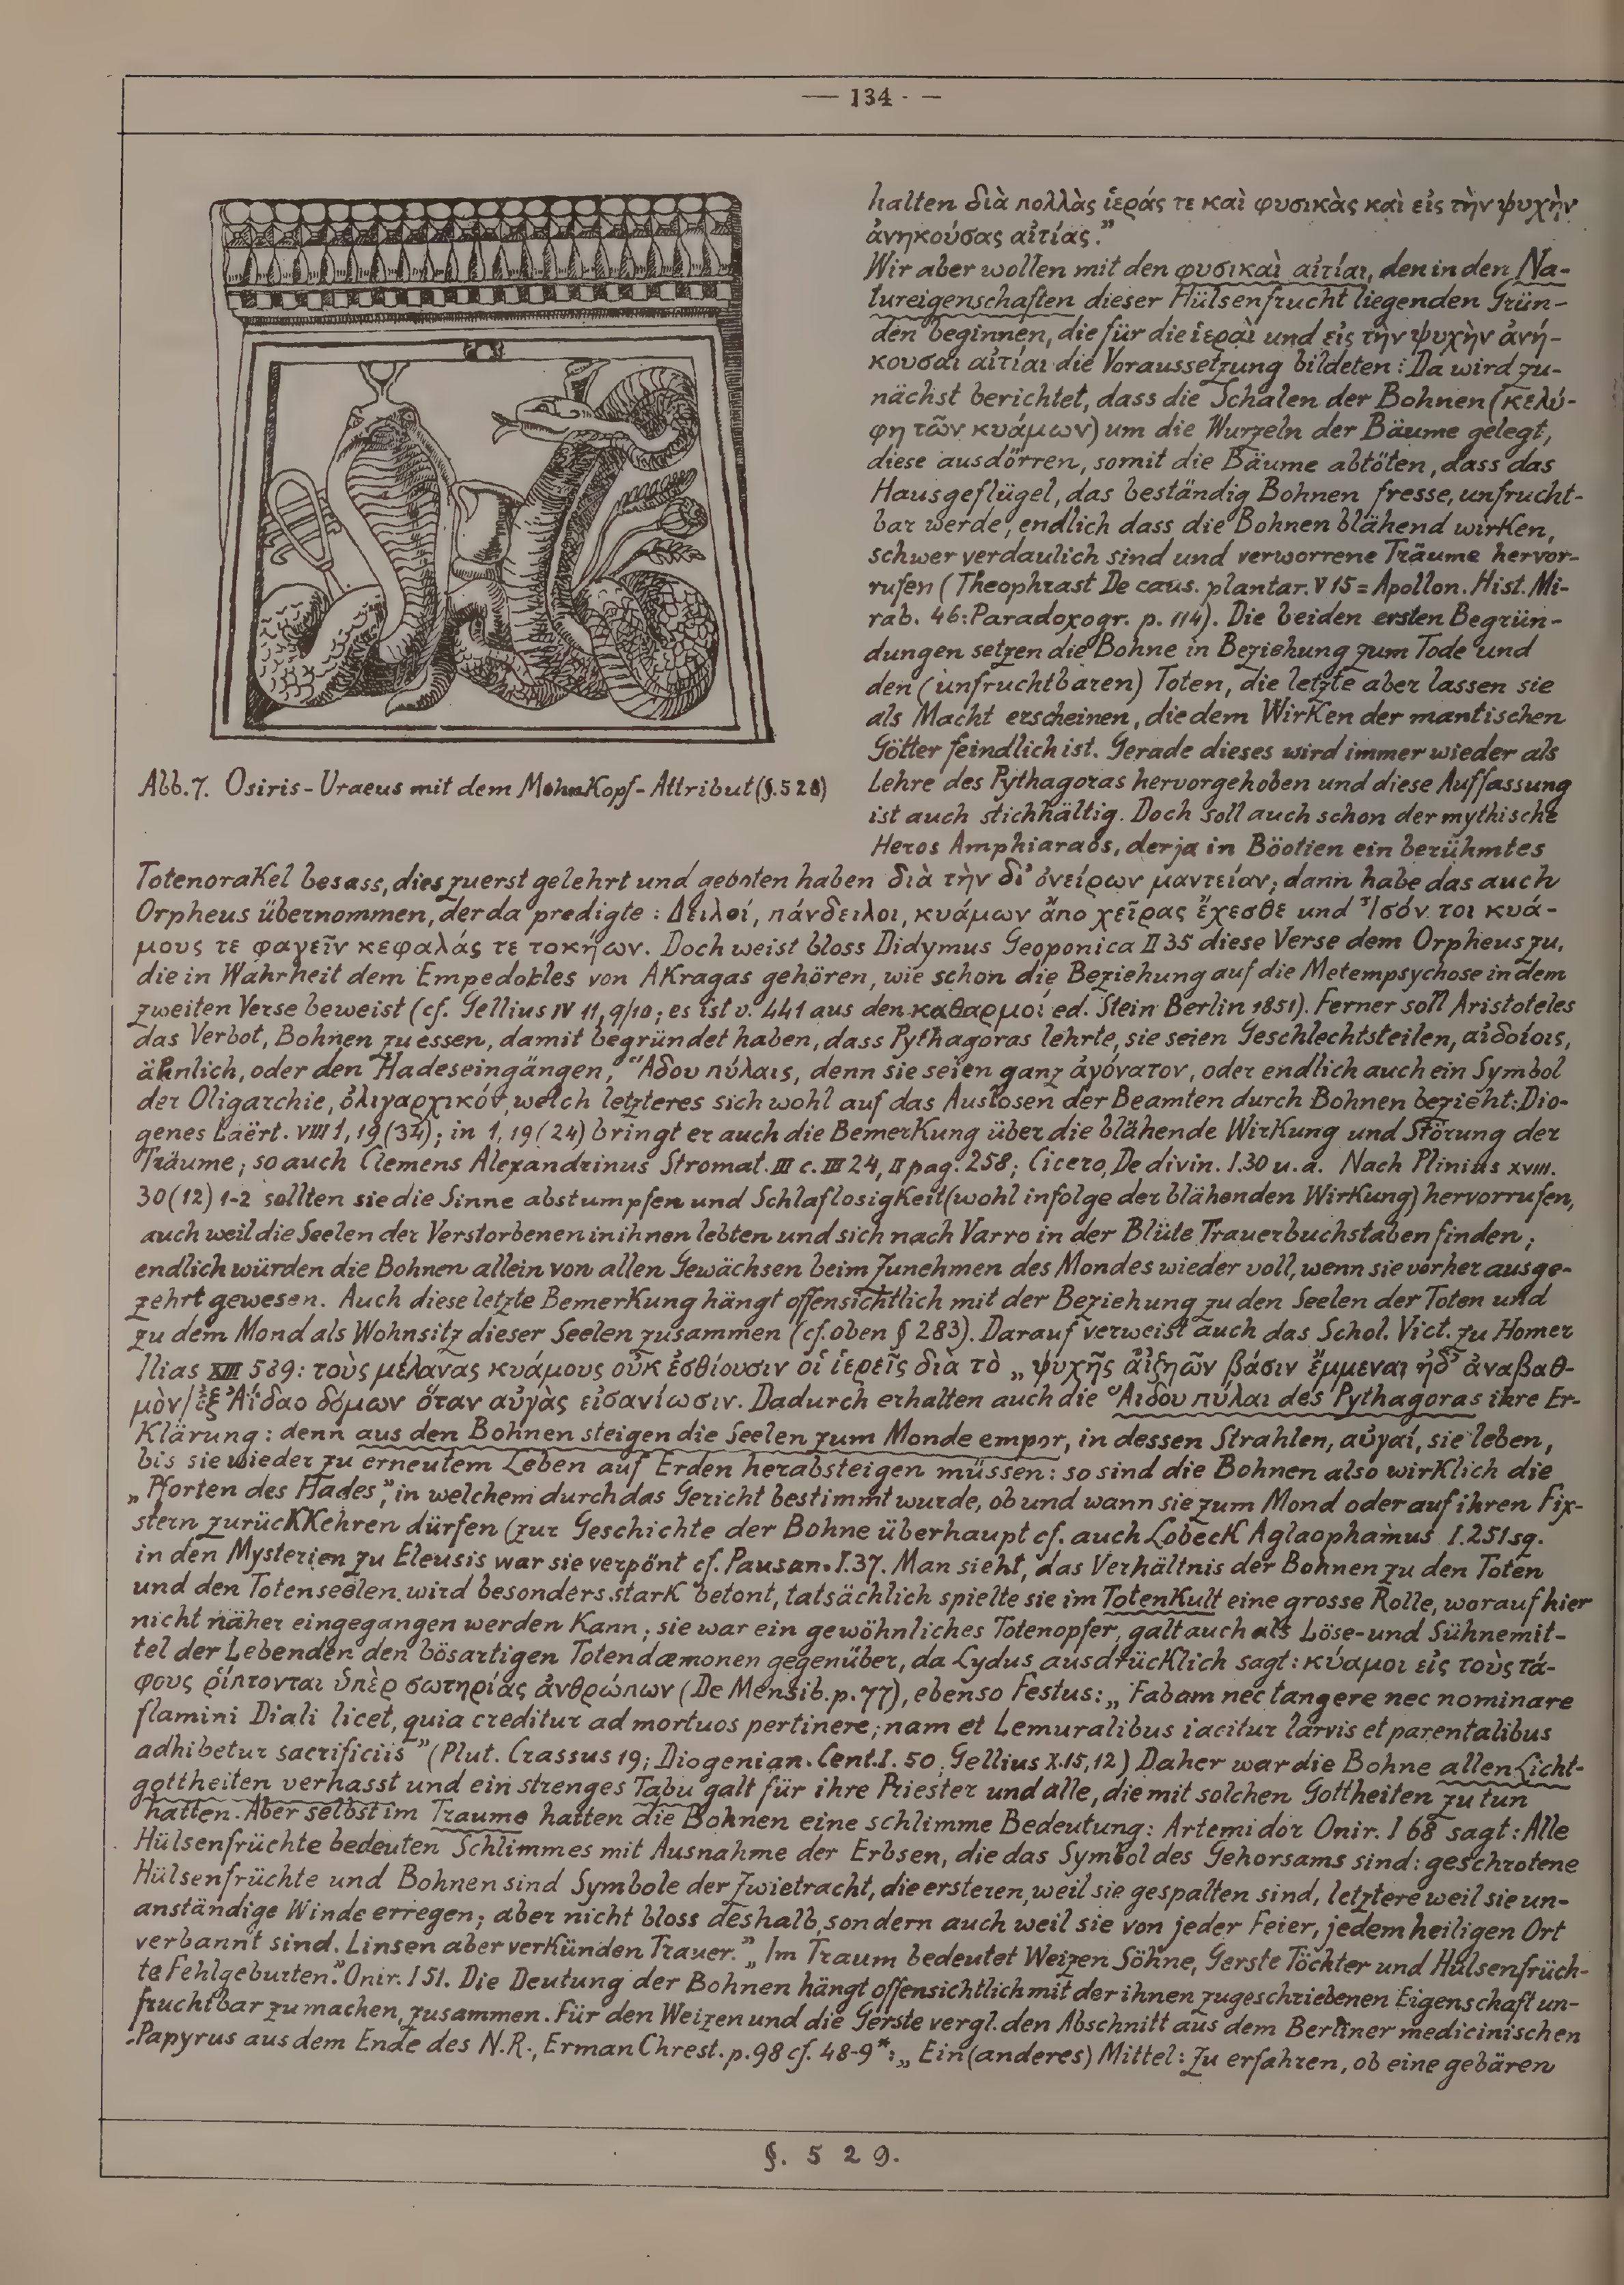 — 134 · —
halten διὰ πολλὰς ἱεράς τε καὶ φυσικὰς καὶ εἰς τὴν ψυχὴν
ἀνηκούσας αἰτίας.”
Wir aber wollen mit den φυσικαὶ αἰτίαι, den in den Na-
tureigenschaften dieser Hülsenfrucht liegenden Grün-
den beginnen, die für die ἱεραὶ und εἰς τὴν ψυχὴν ἀνή-
κουσαι αἰτίαι die Voraussetzung bildeten: Da wird zu-
nächst berichtet, dass die Schalen der Bohnen (κελύ-
φη τῶν κυάμων) um die Wurzeln der Bäume gelegt,
diese ausdörren, somit die Bäume abtöten, dass das
Hausgeflügel, das beständig Bohnen fresse, unfrucht-
bar werde, endlich dass die Bohnen blähend wirken,
schwer verdaulich sind und verworrene Träume hervor-
rufen (Theophrast De caus. plantar. V 15 = Apollon. Hist. Mi-
rab. 46: Paradoxogr. p. 114). Die beiden ersten Begrün-
dungen setzen die Bohne in Beziehung zum Tode und
den (unfruchtbaren) Toten, die letzte aber lassen sie
als Macht erscheinen, die dem Wirken der mantischen
Götter feindlich ist. Gerade dieses wird immer wieder als
Abb. 7. Osiris-Uraeus mit dem Mohnkopf-Attribut (§. 528)
Lehre des Pythagoras hervorgehoben und diese Auffassung
ist auch stichhältig. Doch soll auch schon der mythische
Heros Amphiaraos, der ja in Böotien ein berühmtes
Totenorakel besass, dies zuerst gelehrt und geboten haben διὰ τὴν δι᾽ ὀνείρων μαντείαν; dann habe das auch
Orpheus übernommen, der da predigte: Δειλοί, πάνδειλοι, κυάμων ἄπο χεῖρας ἔχεσθε und Ἶσόν τοι κυά-
μους τε φαγεῖν κεφαλάς τε τοκήων. Doch weist bloss Didymus Geoponica II 35 diese Verse dem Orpheus zu,
die in Wahrheit dem Empedokles von Akragas gehören, wie schon die Beziehung auf die Metempsychose in dem
zweiten Verse beweist (cf. Gellius IV 11, 9/10; es ist v. 441 aus den καθαρμοί ed. Stein Berlin 1851). Ferner soll Aristoteles
das Verbot, Bohnen zu essen, damit begründet haben, dass Pythagoras lehrte, sie seien Geschlechtsteilen, αἰδοίοις,
ähnlich, oder den Hadeseingängen, Ἅδου πύλαις, denn sie seien ganz ἀγόνατον, oder endlich auch ein Symbol
der Oligarchie, ὀλιγαρχικόν, welch letzteres sich wohl auf das Auslosen der Beamten durch Bohnen bezieht: Dio-
genes Laërt. VIII 1, 19 (34); in 1, 19 (24) bringt er auch die Bemerkung über die blähende Wirkung und Störung der
Träume; so auch Clemens Alexandrinus Stromat. III c. III 24, II pag. 258; Cicero, De divin. I. 30 u. a. Nach Plinius XVIII.
30 (12) 1-2 sollten sie die Sinne abstumpfen und Schlaflosigkeit (wohl infolge der blähenden Wirkung) hervorrufen,
auch weil die Seelen der Verstorbenen in ihnen lebten und sich nach Varro in der Blüte Trauerbuchstaben finden;
endlich würden die Bohnen allein von allen Gewächsen beim Zunehmen des Mondes wieder voll, wenn sie vorher ausge-
zehrt gewesen. Auch diese letzte Bemerkung hängt offensichtlich mit der Beziehung zu den Seelen der Toten und
zu dem Mond als Wohnsitz dieser Seelen zusammen (cf. oben § 283). Darauf verweist auch das Schol. Vict. zu Homer
Ilias XIII 589: τοὺς μέλανας κυάμους οὐκ ἐσθίουσιν οἱ ἱερεῖς διὰ τὸ „ψυχῆς αἰζηῶν βάσιν ἔμμεναι ἠδ᾽ ἀναβαθ-
μὸν/ἐξ Ἀίδαο δόμων ὅταν αὐγὰς εἰσανίωσιν. Dadurch erhalten auch die Ἅιδου πύλαι des Pythagoras ihre Er-
klärung: denn aus den Bohnen steigen die Seelen zum Monde empor, in dessen Strahlen, αὐγαί, sie leben,
bis sie wieder zu erneutem Leben auf Erden herabsteigen müssen: so sind die Bohnen also wirklich die
„Pforten des Hades”, in welchem durch das Gericht bestimmt wurde, ob und wann sie zum Mond oder auf ihren Fix-
stern zurückkehren dürfen (zur Geschichte der Bohne überhaupt cf. auch Lobeck Aglaophamus I. 251 sq.
in den Mysterien zu Eleusis war sie verpönt cf. Pausan. I. 37. Man sieht, das Verhältnis der Bohnen zu den Toten
und den Totenseelen wird besonders stark betont, tatsächlich spielte sie im Totenkult eine grosse Rolle, worauf hier
nicht näher eingegangen werden kann; sie war ein gewöhnliches Totenopfer, galt auch als Löse- und Sühnemit-
tel der Lebenden den bösartigen Totendæmonen gegenüber, da Lydus ausdrücklich sagt: κύαμοι εἰς τοὺς τά-
φους ῥίπτονται ὑπὲρ σωτηρίας ἀνθρώπων (De Mensib. p. 77), ebenso Festus: „Fabam nec tangere nec nominare
flamini Diali licet, quia creditur ad mortuos pertinere; nam et Lemuralibus iacitur larvis et parentalibus
adhibetur sacrificiis” (Plut. Crassus 19; Diogenian. Cent. I. 50. Gellius X. 15, 12) Daher war die Bohne allen Licht-
gottheiten verhasst und ein strenges Tabu galt für ihre Priester und alle, die mit solchen Gottheiten zu tun
hatten. Aber selbst im Traume hatten die Bohnen eine schlimme Bedeutung: Artemidor Onir. I 68 sagt: Alle
Hülsenfrüchte bedeuten Schlimmes mit Ausnahme der Erbsen, die das Symbol des Gehorsams sind: geschrotene
Hülsenfrüchte und Bohnen sind Symbole der Zwietracht, die ersteren, weil sie gespalten sind, letztere weil sie un-
anständige Winde erregen; aber nicht bloss deshalb, sondern auch weil sie von jeder Feier, jedem heiligen Ort
verbannt sind. Linsen aber verkünden Trauer.” „Im Traum bedeutet Weizen Söhne, Gerste Töchter und Hülsenfrüch-
te Fehlgeburten.” Onir. I 51. Die Deutung der Bohnen hängt offensichtlich mit der ihnen zugeschriebenen Eigenschaft un-
fruchtbar zu machen, zusammen. Für den Weizen und die Gerste vergl. den Abschnitt aus dem Berliner medicinischen
Papyrus aus dem Ende des N.R., Erman Chrest. p. 98 cf. 48-9*: „Ein (anderes) Mittel: Zu erfahren, ob eine gebären
§. 529.